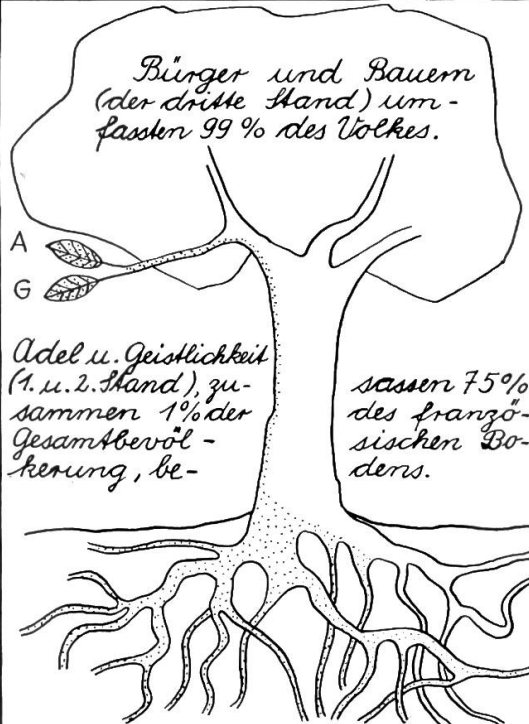 Bürger und Bauern
(der dritte Stand) um-
fassten 99 % des Volkes.
A
G
Adel u. Geistlichkeit
(1. u. 2. Stand), zu-
sammen 1% der
Gesamtbevöl-
kerung, be-
sassen 75%
des franzö-
sischen Bo-
dens.